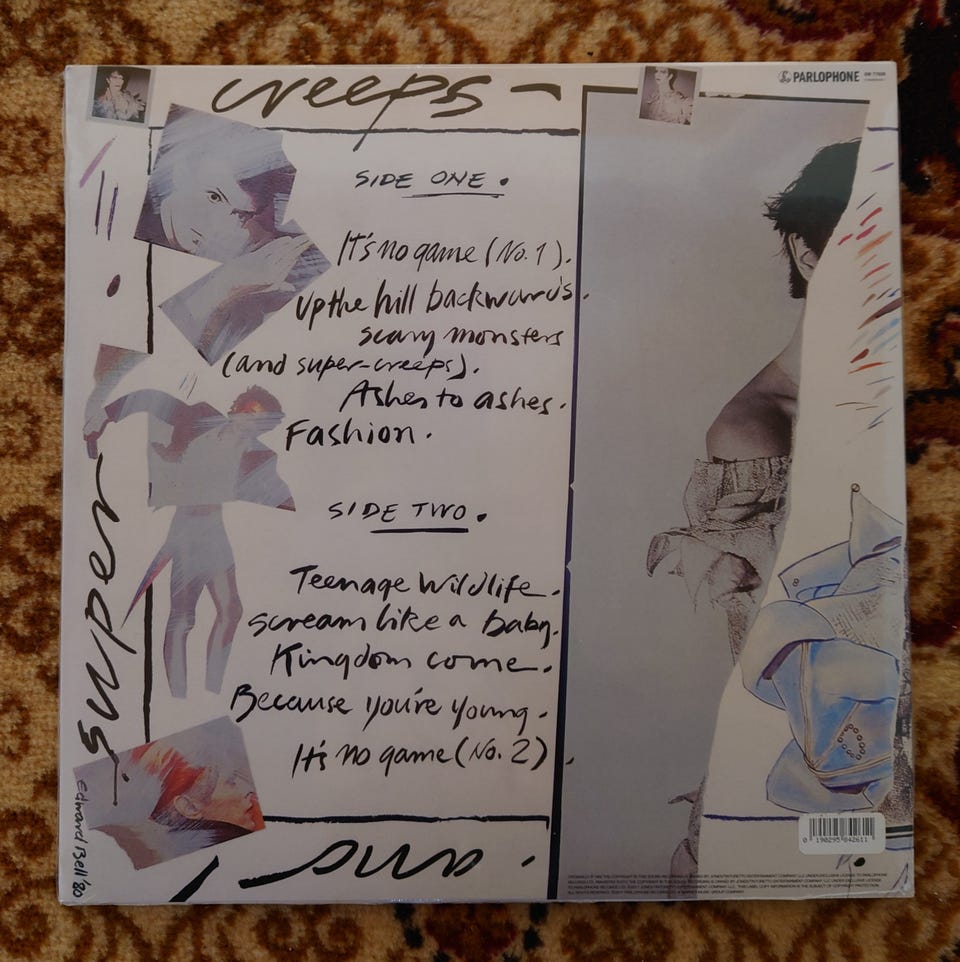 creeps -
PARLOPHONE
SIDE ONE.
It's no game (No. 1).
Up the hill backwards.
scary monsters
(and super-creeps).
Ashes to ashes.
Fashion.
SIDE TWO.
Teenage Wildlife.
scream like a baby.
Kingdom come.
Because you're young.
It's no game (No. 2).
super
and
Edward Bell '80
0 190295 842611